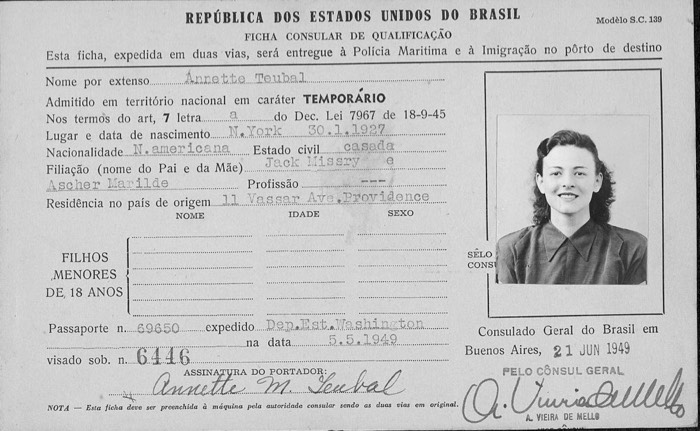 REPÚBLICA DOS ESTADOS UNIDOS DO BRASIL
Modêlo S.C. 139
FICHA CONSULAR DE QUALIFICAÇÃO
Esta ficha, expedida em duas vias, será entregue à Polícia Marítima e à Imigração no pôrto de destino
Nome por extenso Annette Teubal
Admitido em território nacional em caráter TEMPORÁRIO
Nos termos do art, 7 letra a do Dec. Lei 7967 de 18-9-45
Lugar e data de nascimento N.York 30.1.1927
Nacionalidade N.americana Estado civil casada
Filiação (nome do Pai e da Mãe) Jack Missry e
Ascher Marilde Profissão ---
Residência no país de origem 11 Vassar Ave.Providence
NOME IDADE SEXO
FILHOS
MENORES
DE 18 ANOS
SÊLO
CONS
Passaporte n. 69650 expedido Dep.Est.Washington
na data 5.5.1949
visado sob. n. 6446
ASSINATURA DO PORTADOR:
Annette M. Teubal
NOTA — Esta ficha deve ser preenchida à máquina pela autoridade consular sendo as duas vias em original.
Consulado Geral do Brasil em
Buenos Aires, 21 JUN 1949
PELO CÔNSUL GERAL
A. VIEIRA DE MELLO